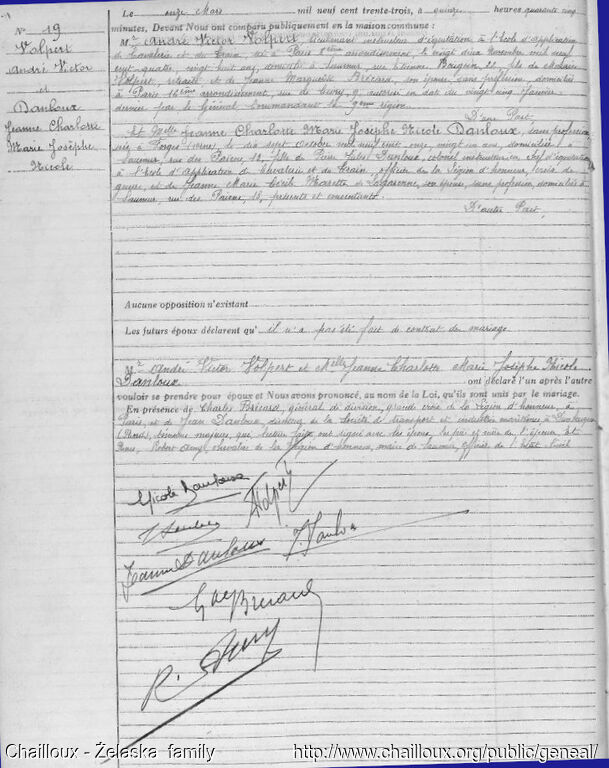 N° 19
Volpert
André Victor
et
Danloux
Jeanne Charlotte
Marie Josèphe
Nicole
Le onze Mars mil neuf cent trente-trois, à quinze heures quarante cinq
minutes, Devant Nous ont comparu publiquement en la maison commune :
Mr André Victor Volpert, lieutenant instructeur d'équitation à l'école d'application
de Cavalerie et du Train, né à Paris arrondissement, le vingt deux Novembre mil neuf
cent quatre, vingt huit ans, domicilié à Saumur, rue 22, fils de
Volpert, retraité et de Jeanne Marguerite Brécard, son épouse, sans profession, domiciliés
à Paris 16ème arrondissement, rue de 9, autorisé en date du vingt cinq Janvier
dernier par le Général Commandant la 9ème région.
D'une Part,
Et Melle Jeanne Charlotte Marie Josèphe Nicole Danloux, sans profession,
née à (Orne), le dix sept Octobre mil neuf cent onze, vingt un ans, domiciliée à
Saumur, rue des Païens, 13, fille de Pierre Jules Danloux, colonel instructeur en chef d'équitation
à l'école d'Application de Cavalerie et du Train, officier de la Légion d'honneur, croix de
guerre et de Jeanne Marie Cécile de son épouse, sans profession, domiciliés à
Saumur, rue des Païens, 13, présents et consentants
D'autre Part,
Aucune opposition n'existant
Les futurs époux déclarent qu' il n'a pas été fait de contrat de mariage.
Mr André Victor Volpert et Melle Jeanne Charlotte Marie Josèphe Nicole
Danloux ont déclaré l'un après l'autre
vouloir se prendre pour époux et Nous avons prononcé, au nom de la Loi, qu'ils sont unis par le mariage.
En présence de Charles Brécard, général de division, grande croix de la Légion d'honneur, à
Paris, et de Jean Danloux, directeur de la Société de transport et industries maritimes à
témoins majeurs, qui lecture faite ont signé avec les époux, les père et mère de l'épouse et
Nous, Robert Amy, chevalier de la Légion d'honneur, maire de Saumur, officier de l'état civil
Nicole Danloux
Volpert
Jeanne Danloux
J. Danloux
Gal Brécard
R. Amy
Chailloux - Żelaska family
http://www.chailloux.org/public/geneal/